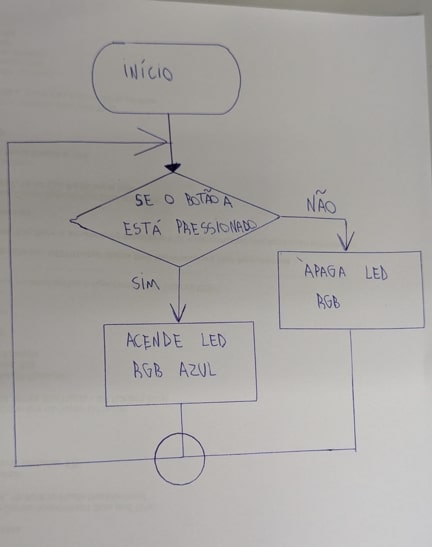 INÍCIO
SE O BOTÃO A
ESTÁ PRESSIONADO
NÃO
SIM
APAGA LED
RGB
ACENDE LED
RGB AZUL